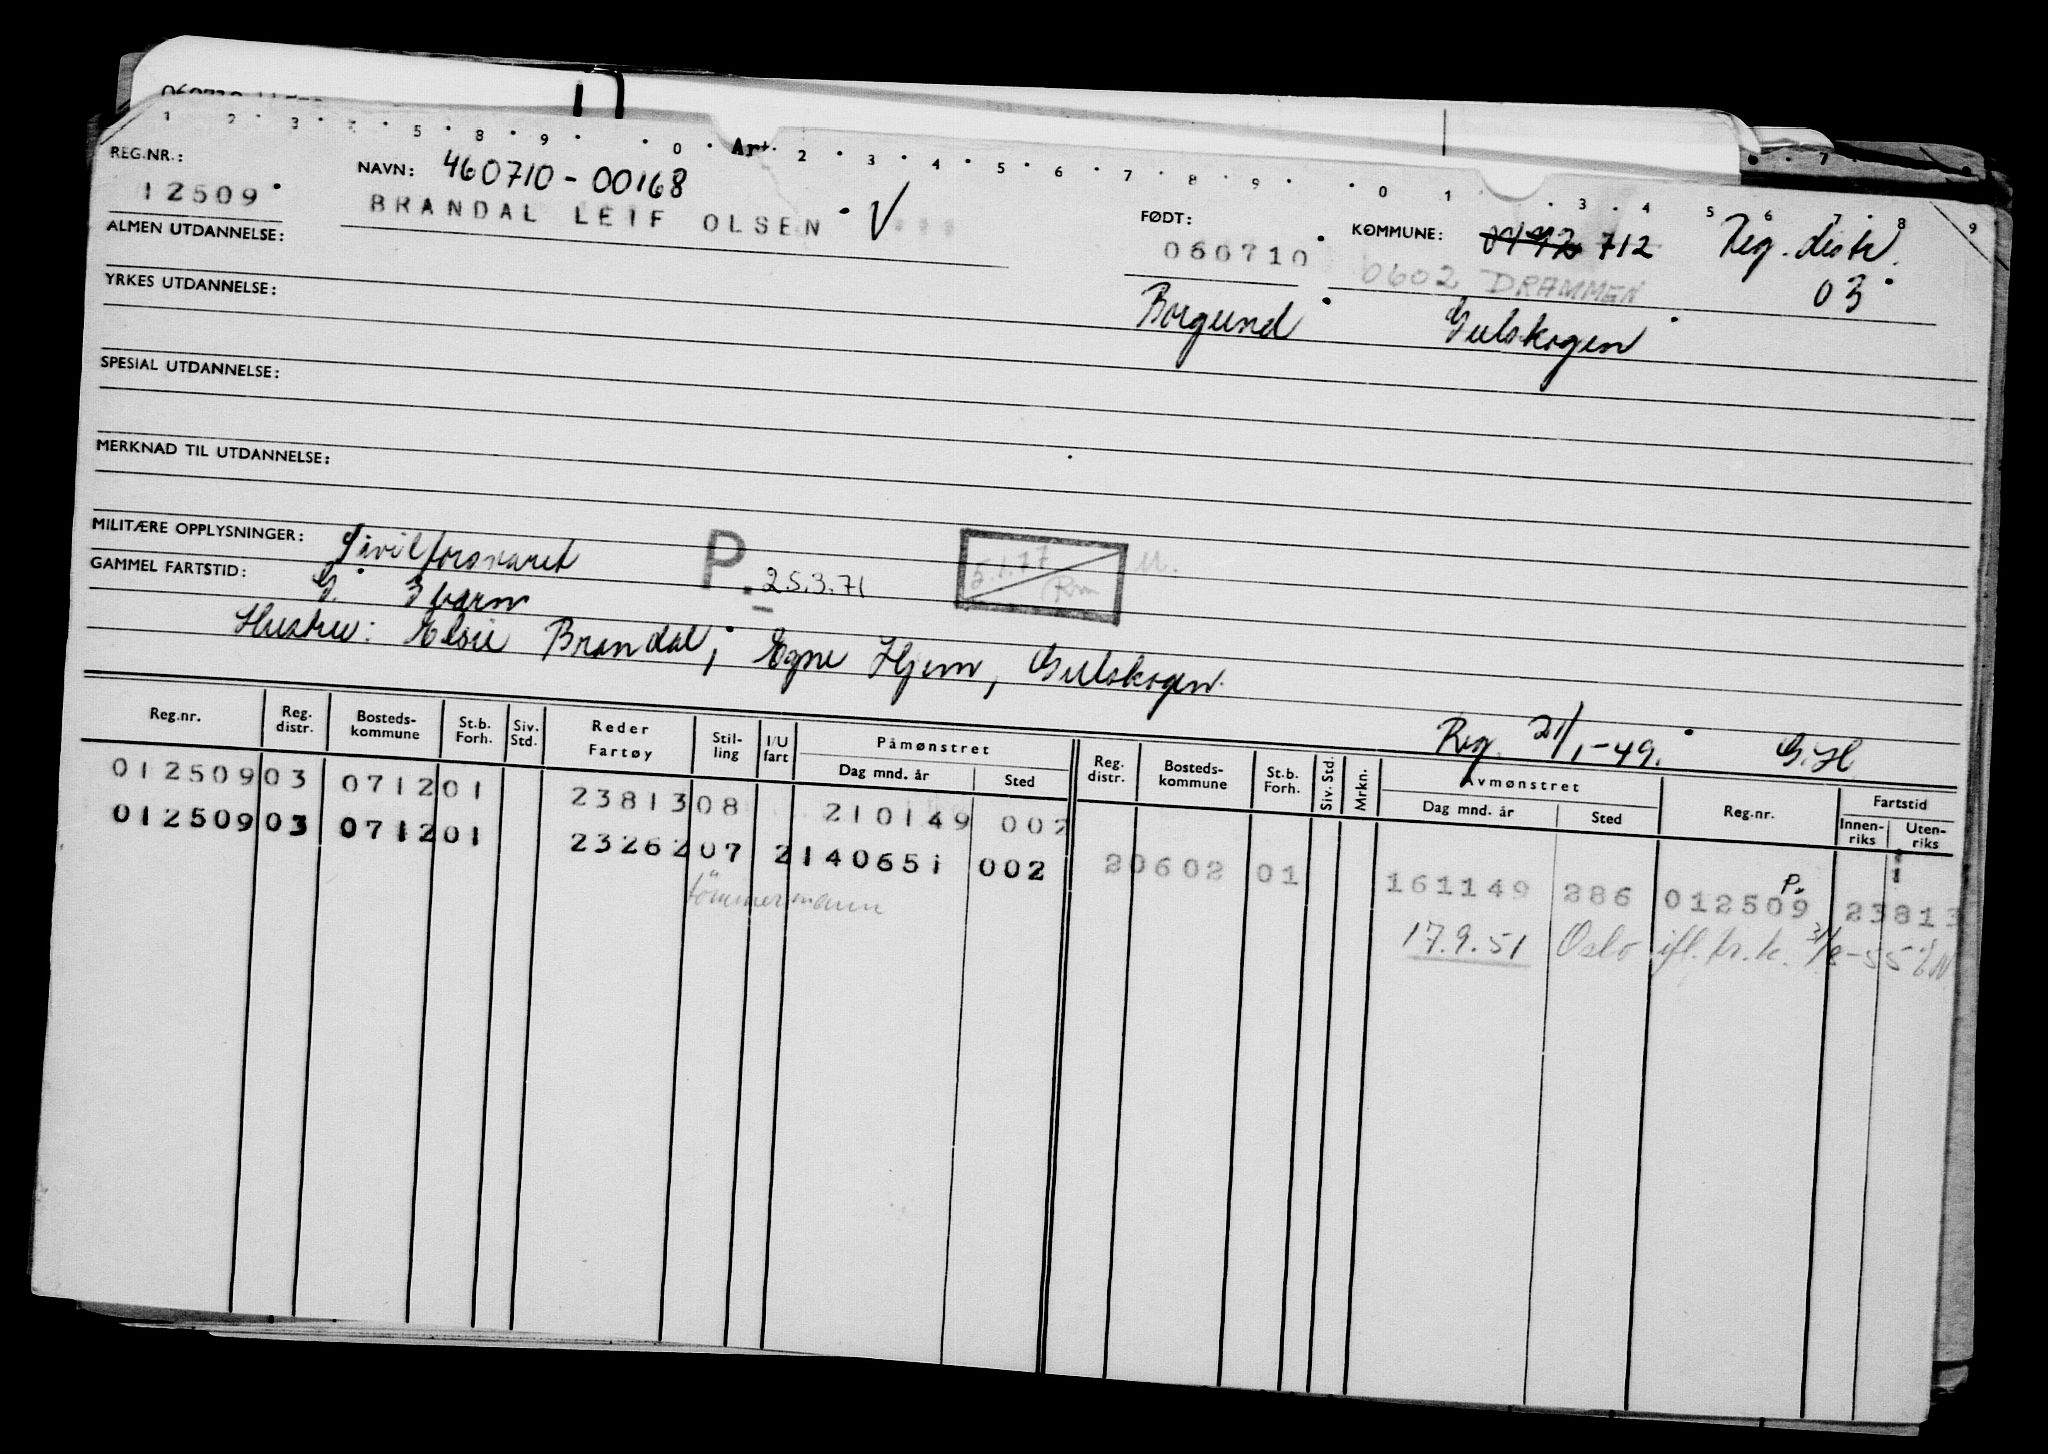 1 2 3 4 5 8 9 0 Art. 2 3 4 5 6 7 8 9 0 1 3 4 5 6 7 8 9
REG.NR.: NAVN: 460710-00168
12509 BRANDAL LEIF OLSEN V FØDT: 060710 KOMMUNE: 712 Reg. distr. 03
0602 DRAMMEN
ALMEN UTDANNELSE:
Borgund Gulskogen
YRKES UTDANNELSE:
SPESIAL UTDANNELSE:
MERKNAD TIL UTDANNELSE:
MILITÆRE OPPLYSNINGER: Sivilforsvaret P. 25.3.71 5.1.77 Rm M.
GAMMEL FARTSTID: G. 3 barn
Hustru: Elsie Brandal, Egne Hjem, Gulskogen.
Reg. 21/1-49. G.H
Reg.nr. Reg. distr. Bosteds-kommune St.b. Forh. Siv. Std. Reder Fartøy Stil-ling I/U fart Påmønstret Dag mnd. år Sted Reg. distr. Bosteds-kommune St.b. Forh. Siv. Std. Mrkn. Avmønstret Dag mnd. år Sted Reg.nr. Fartstid Innen-riks Uten-riks
012509 03 0712 01 23813 08 210149 002 2 0602 01 161149 286 012509 P. 23813
012509 03 0712 01 23262 07 2 140651 002 17.9.51 Oslo ifl. tr.k. 31/8-55
tömmermann